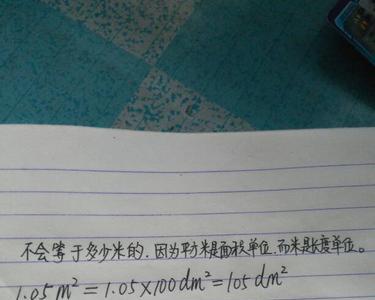 不会等于多少米的.因为平方米是面积单位.而米是长度单位。
1.05m²=1.05×100dm²=105dm²